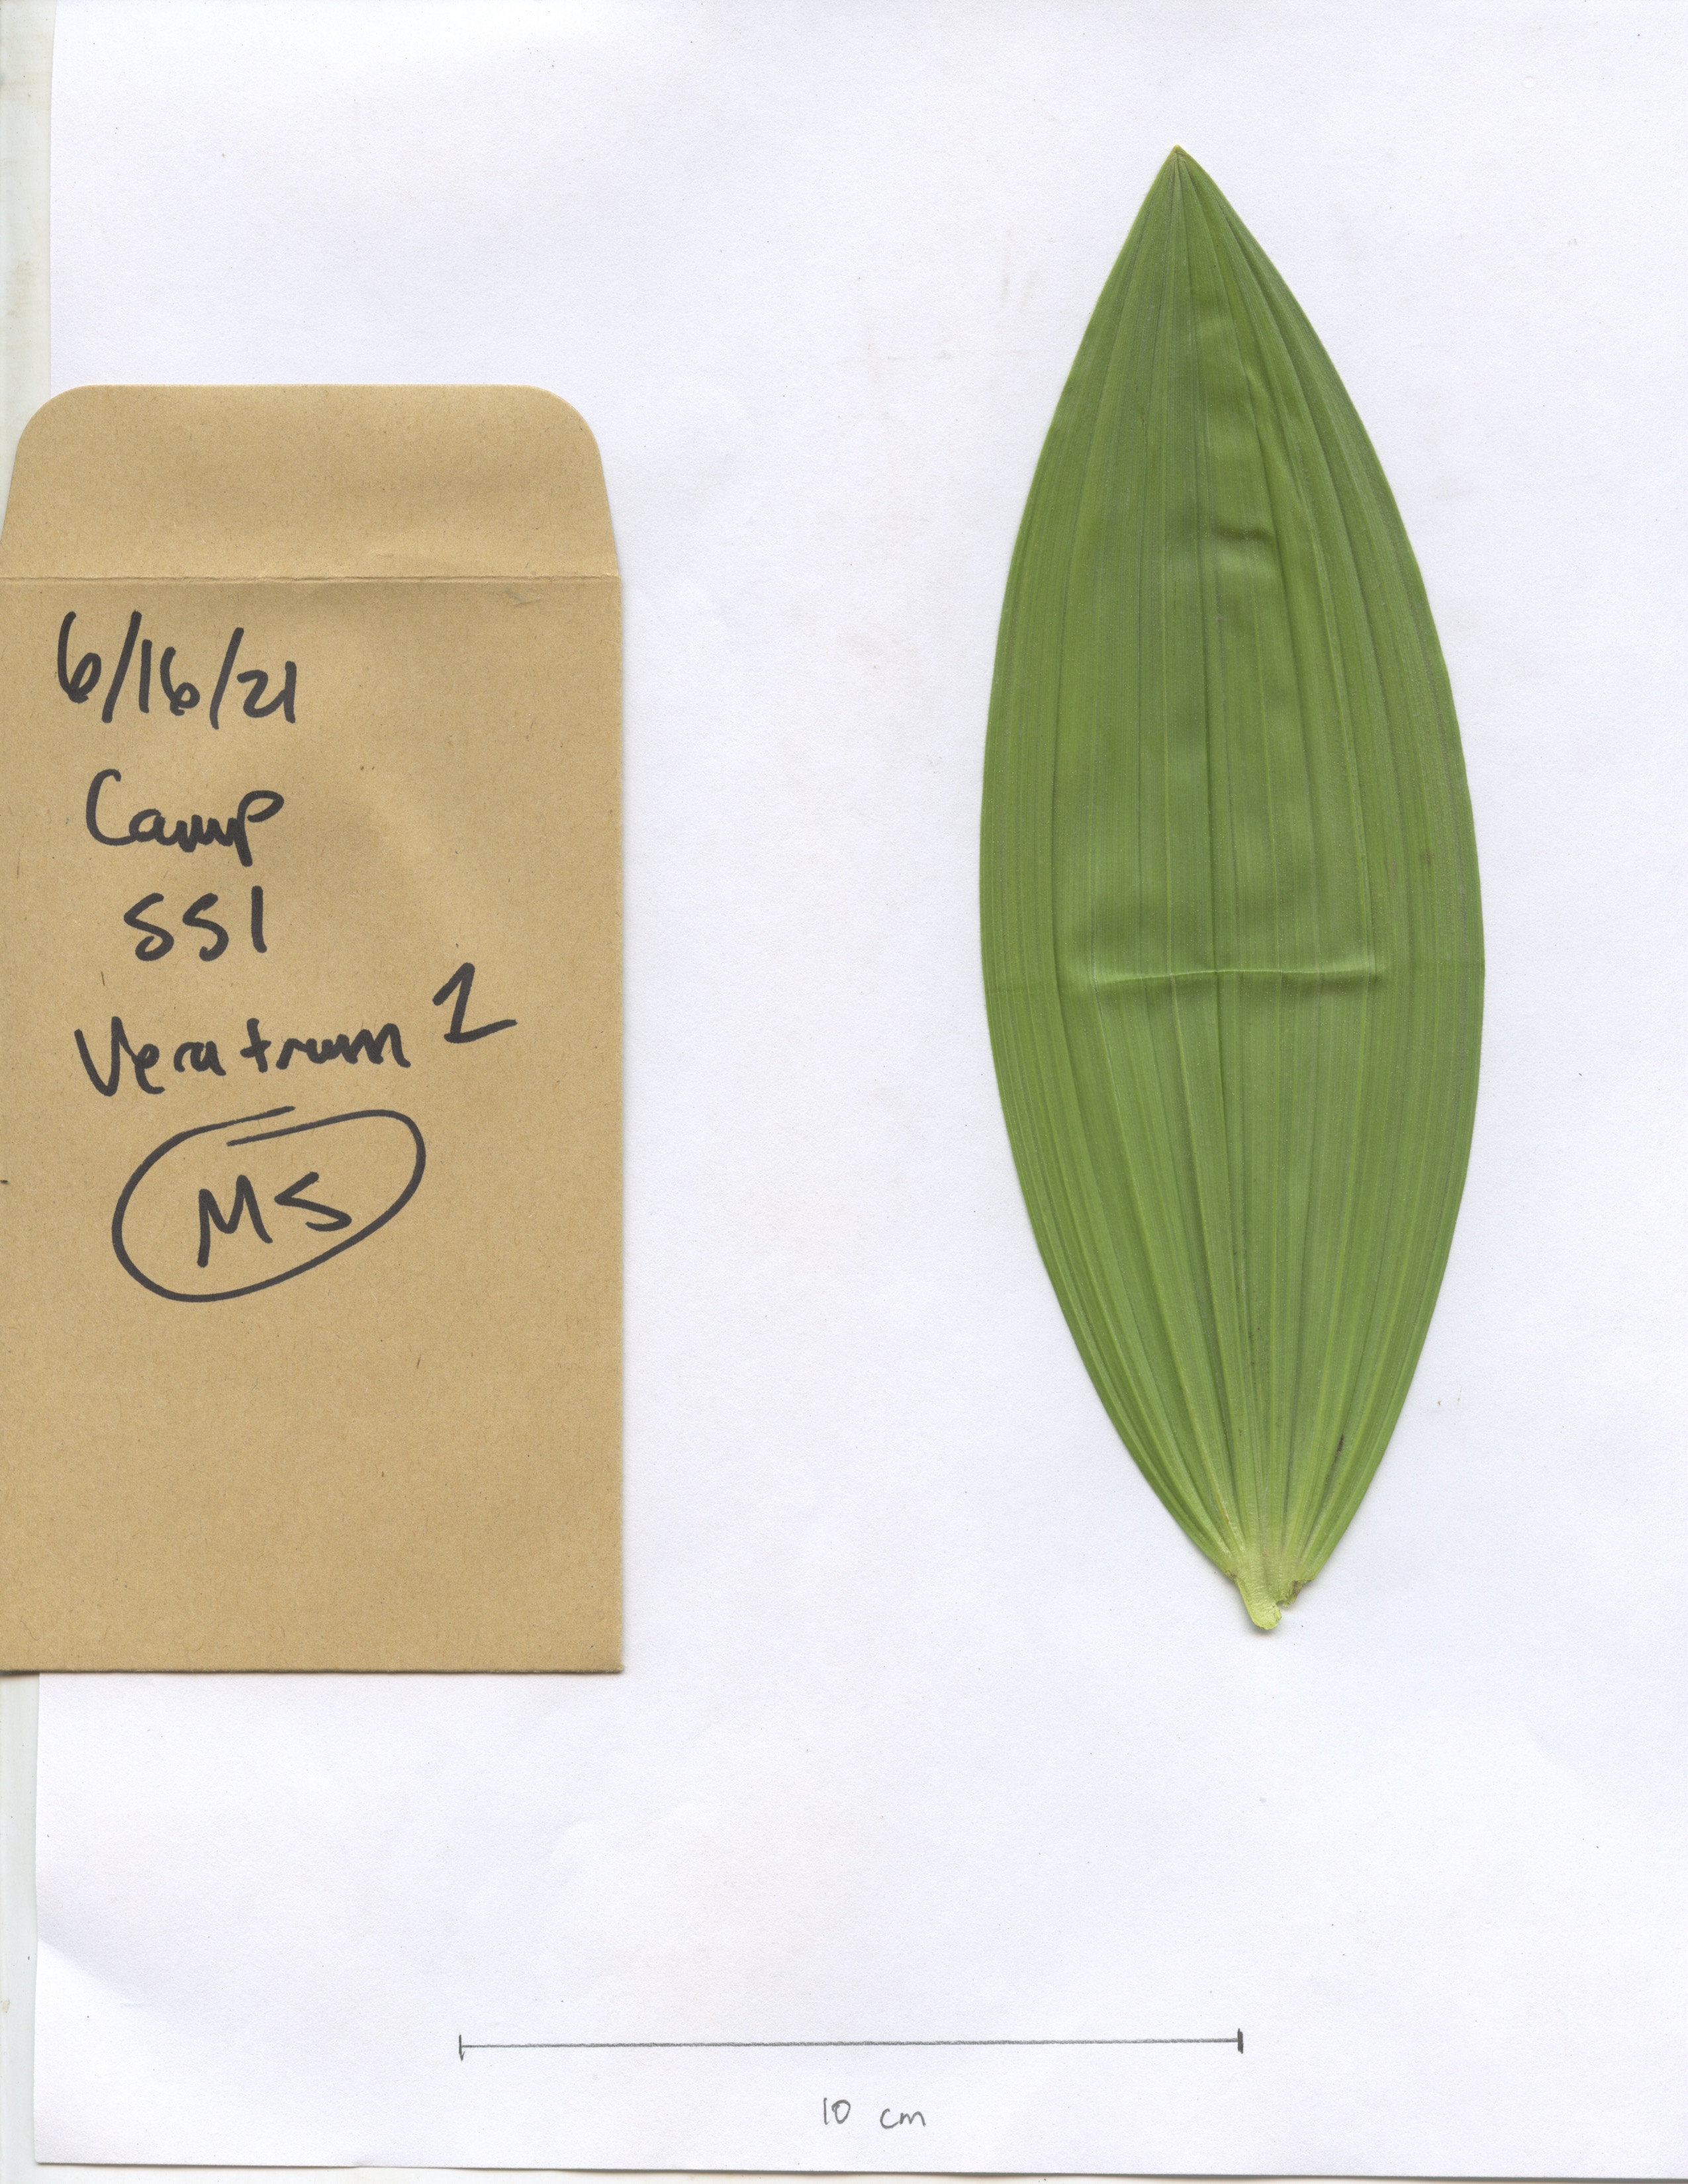 6/16/21
Camp
SS1
Veratrum 1
MS
10 cm